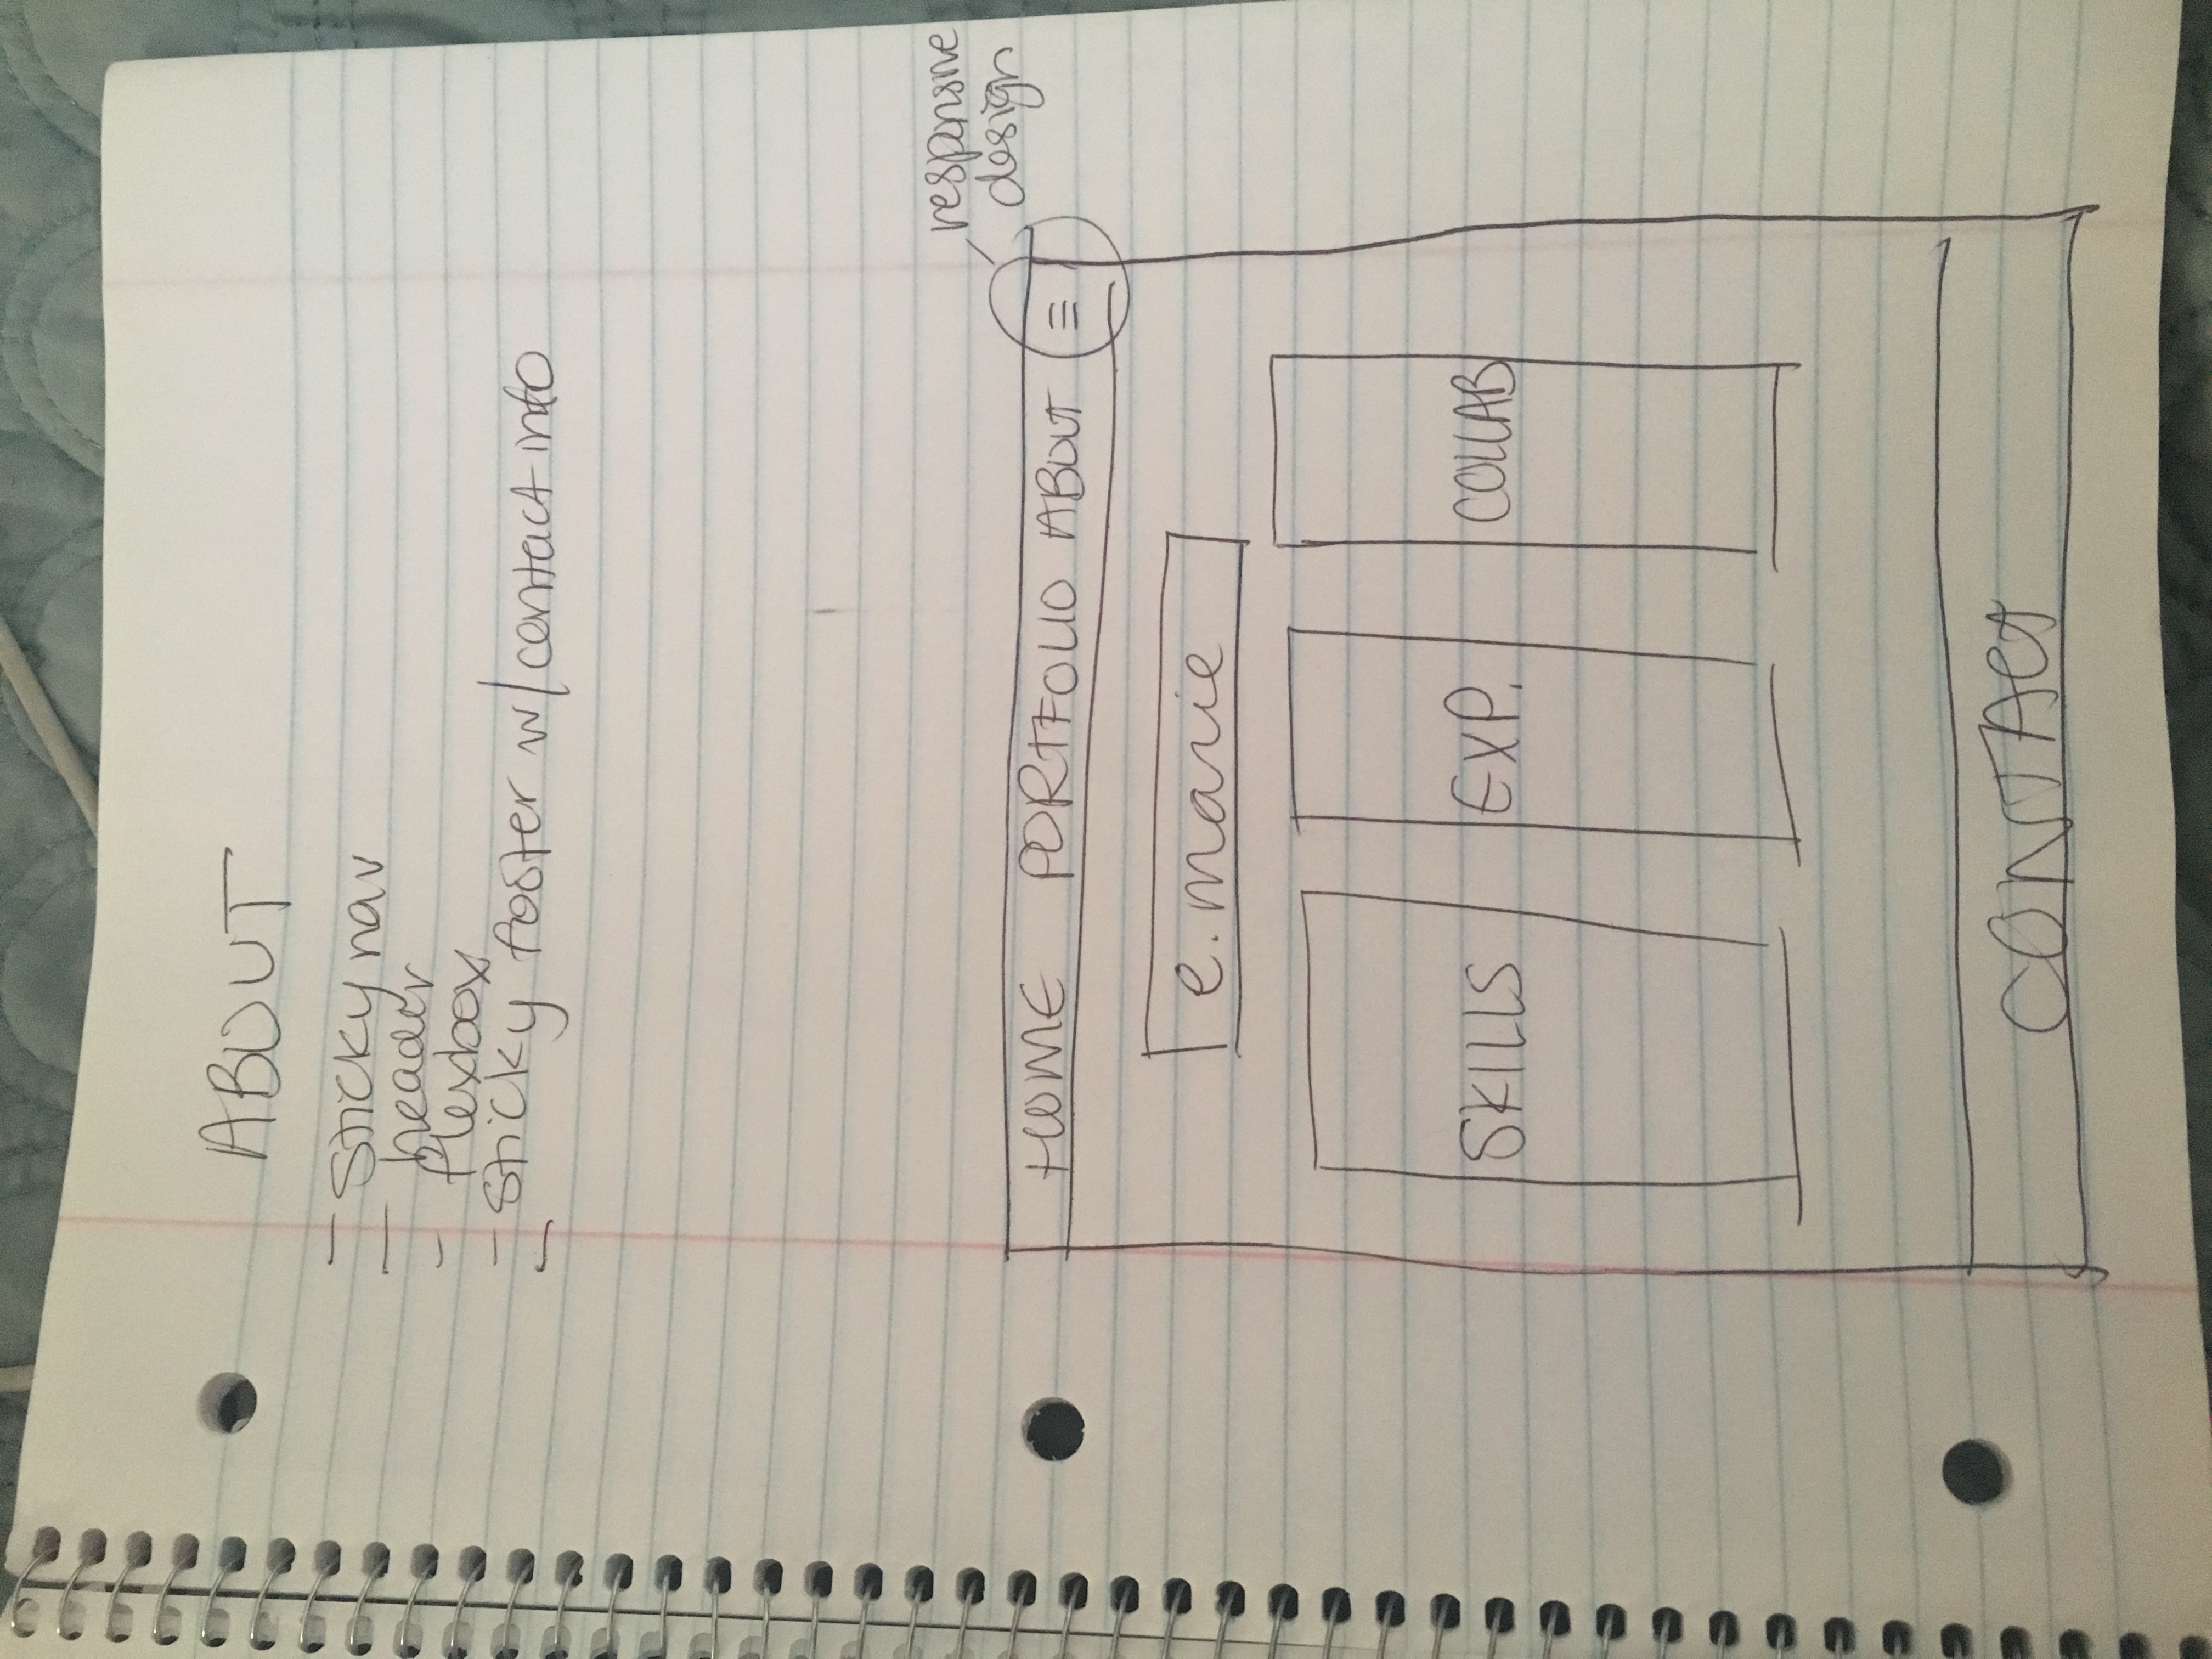 ABOUT
- Sticky nav
- header
- flexbox
- Sticky footer w/contact info
-
responsive
design
HOME PORTFOLIO ABOUT ≡
e.marie
SKILLS EXP. COLLAB
CONTACT